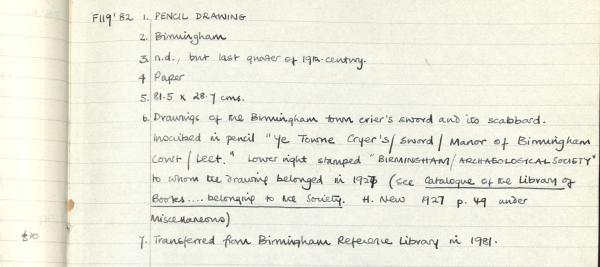 F119'82 1. PENCIL DRAWING
2. Birmingham
3. n.d., but last quarter of 19th century.
4 Paper
5. 81.5 x 28.7 cms.
6. Drawings of the Birmingham town crier's sword and its scabbard.
Inscribed in pencil "Ye Towne Cryer's/ Sword/ Manor of Birmingham
Court / Leet." Lower right stamped "BIRMINGHAM/ARCHAEOLOGICAL SOCIETY"
to whom the drawing belonged in 1927 (see Catalogue of the Library of
Books.... belonging to the Society. H. New 1927 p. 49 under
Miscellaneous)
£10 7. Transferred from Birmingham Reference Library in 1981.